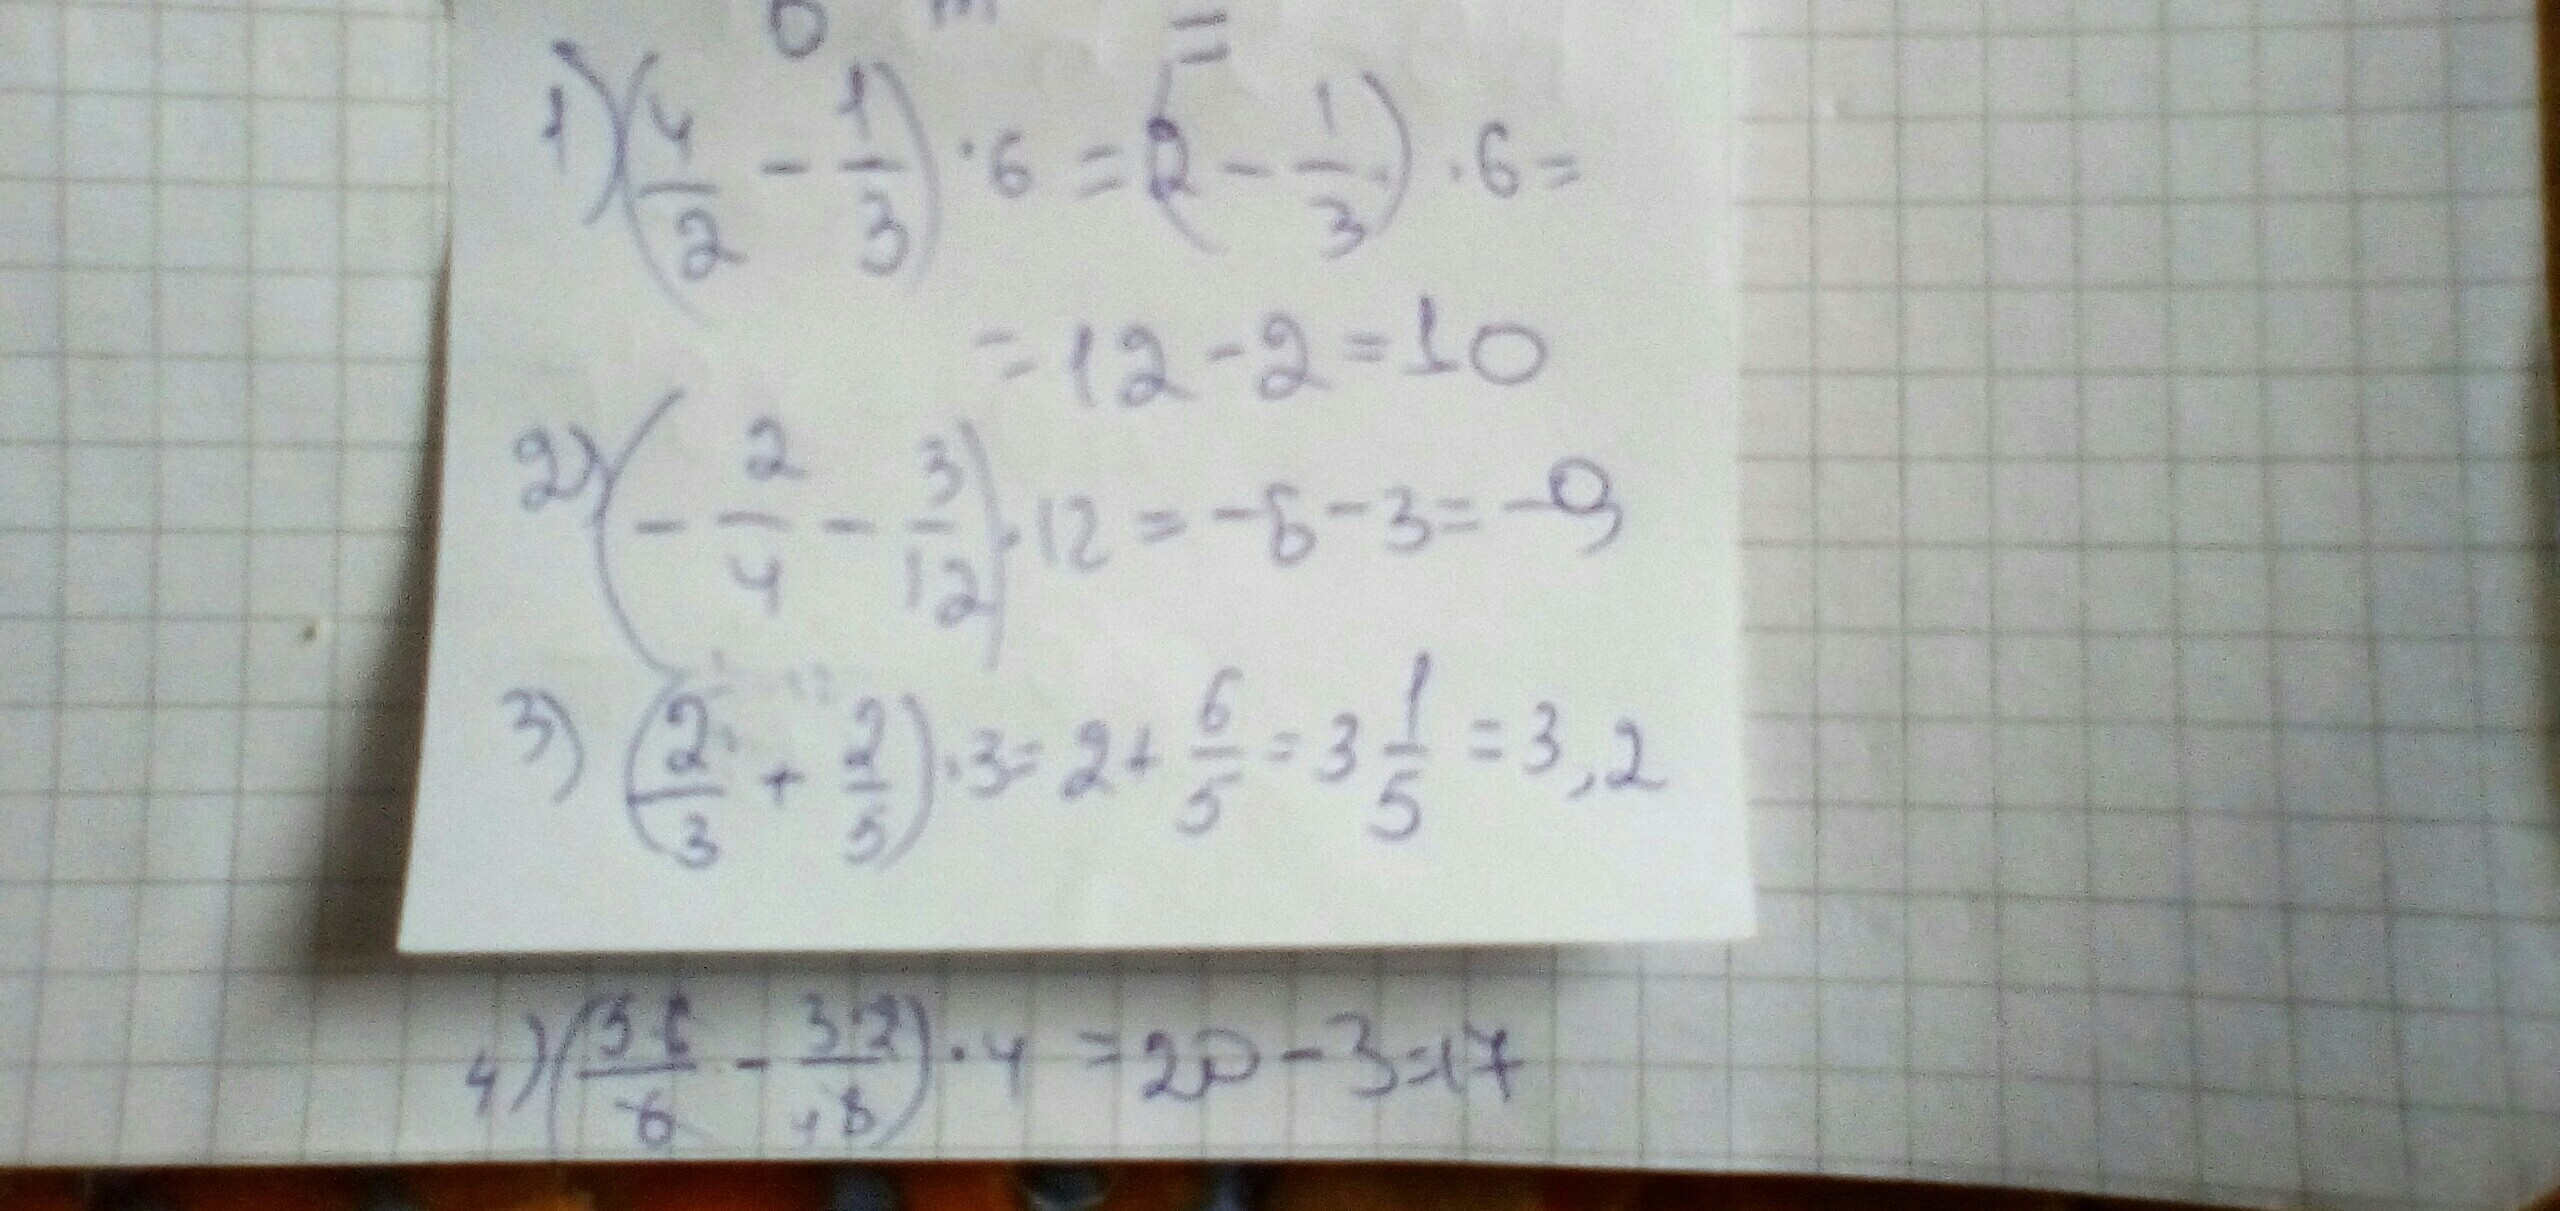 =
1) (4/2 - 1/3) · 6 = (2 - 1/3) · 6 =
= 12 - 2 = 10
2) (- 2/4 - 3/12) · 12 = -6 - 3 = -9
3) (2/3 + 2/5) · 3 = 2 + 6/5 = 3 1/5 = 3,2
4) · 4 = 20 - 3 = 17